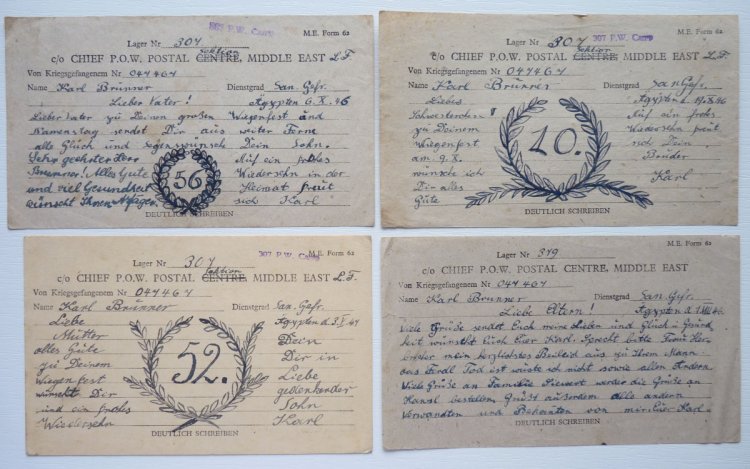 307 P.W. Camp
M.E. Form 62
Lager Nr 307
Sektion
c/o CHIEF P.O.W. POSTAL CENTRE, MIDDLE EAST L.F.
Von Kriegsgefangenem Nr 047467
Name Karl Brünner Dienstgrad San. Gefr.
Lieber Vater! Ägypten 6.X.46
Lieber Vater zu Deinem großen Wiegenfest und
Namenstag sendet Dir aus weiter Ferne
alles Glück und Segenswunsch Dein Sohn.
Sehr geehrter Herr Auf ein frohes
Brünner! Alles Gute Wiedersehn in der
und viel Gesundheit Heimat freut
wünscht Ihnen sich Karl
56
DEUTLICH SCHREIBEN
307 P.W. Camp
M.E. Form 62
Lager Nr 307
Sektion
c/o CHIEF P.O.W. POSTAL CENTRE, MIDDLE EAST L.F.
Von Kriegsgefangenem Nr 047467
Name Karl Brünner Dienstgrad San. Gefr.
Liebes Ägypten d.
Schwesterchen Auf ein frohes
zu Deinem Wiedersehn freut
Wiegenfest sich Dein
am 9.X. Bruder
wünsche ich Karl
Dir alles
Gute
10.
DEUTLICH SCHREIBEN
307 P.W. Camp
M.E. Form 62
Lager Nr 307
Sektion
c/o CHIEF P.O.W. POSTAL CENTRE, MIDDLE EAST L.F.
Von Kriegsgefangenem Nr 047467
Name Karl Brünner Dienstgrad San. Gefr.
Liebe Ägypten d. 3.I.47
Mutter Dein
alles Gute Dir in
zu Deinem Liebe
Wiegenfest gedenkender
wünscht Dir Sohn
und ein frohes Karl
Wiedersehn
52.
DEUTLICH SCHREIBEN
M.E. Form 62
Lager Nr 379
c/o CHIEF P.O.W. POSTAL CENTRE, MIDDLE EAST
Von Kriegsgefangenem Nr 047467
Name Karl Brünner Dienstgrad San. Gefr.
Liebe Eltern! Ägypten d.
Viele Grüße sendet Euch meine Lieben und Glück u. Gesund
heit wünscht Euch Euer Karl. Sprecht bitte Frau
mein herzlichstes Beileid aus zu Ihrem Mann.
Das Ferdl Tod ist wüßte ich nicht sowie allen Andern
Viele Grüße an Familie werde die Grüße an
Hansl bestellen. Grüßt außerdem alle andern
Verwandten und Bekannten von mir. Euer Karl.
DEUTLICH SCHREIBEN